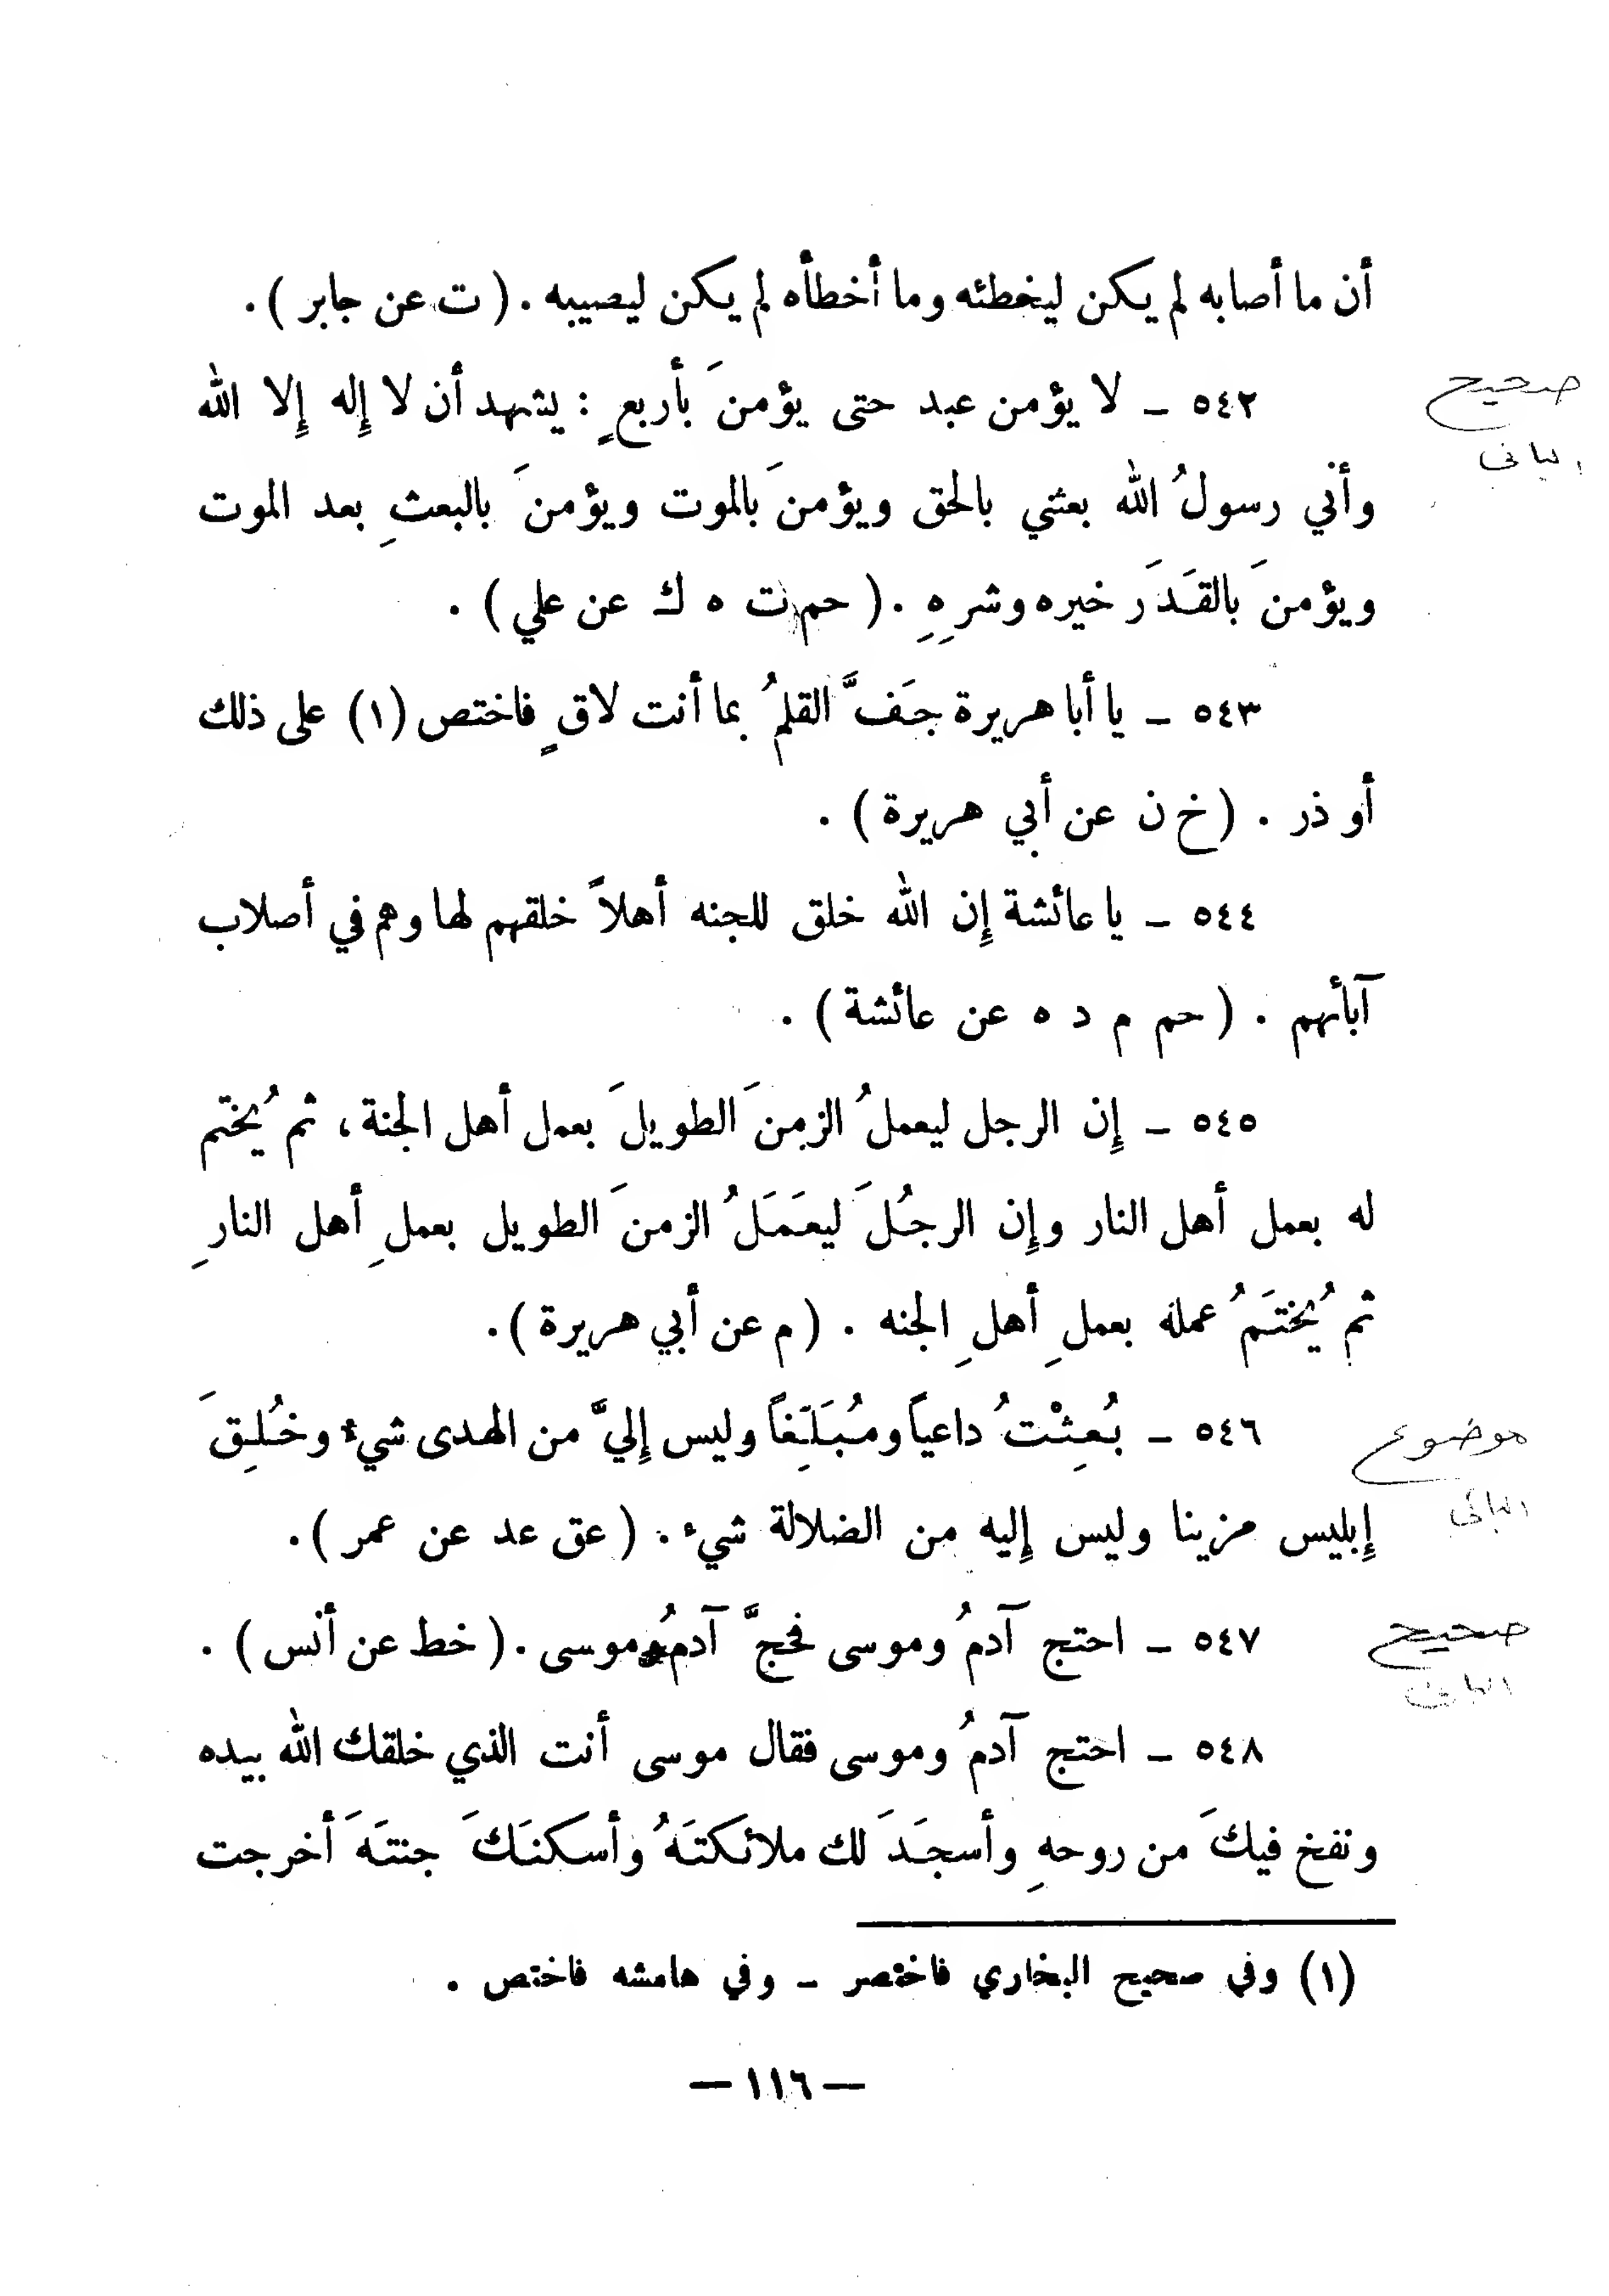 أن ما أصابه لم يكن ليخطئه وما أخطأه لم يكن ليصيبه . ( ت عن جابر ) .
صحيح
٥٤٢ – لا يؤمن عبد حتى يؤمنَ بأربعٍ : يشهد أن لا إله إلا الله
الباني
وأني رسولُ الله بعثني بالحق ويؤمنَ بالموت ويؤمنَ بالبعثِ بعد الموت
ويؤمنَ بالقَدَر خيره وشرِهِ . ( حم ت ه ك عن علي ) .
٥٤٣ – يا أبا هريرة جَفَّ القلمُ بما أنت لاقٍ فاختص (١) على ذلك
أو ذر . ( خ ن عن أبي هريرة ) .
٥٤٤ – يا عائشة إن الله خلق للجنه أهلاً خلقهم لها وهم في أصلاب
آبائهم . ( حم م د ه عن عائشة ) .
٥٤٥ – إن الرجل ليعملُ الزمنَ الطويلَ بعمل أهل الجنة، ثم يُختم
له بعمل أهل النار وإن الرجُلَ ليعَمَلُ الزمنَ الطويل بعملِ أهل النارِ
ثم يُختَمُ عمله بعملِ أهلِ الجنه . ( م عن أبي هريرة ) .
موضوع
٥٤٦ – بُعِثْتُ داعياً ومُبَلِّغاً وليس إليَّ من الهدى شيءٌ وخُلِقَ
الباني
إبليس مزينا وليس إليه من الضلالة شيء . ( عق عد عن عمر ) .
صحيح
٥٤٧ – احتج آدمُ وموسى فحجَّ آدمُ موسى . ( خط عن أنس ) .
الباني
٥٤٨ – احتج آدمُ وموسى فقال موسى أنت الذي خلقك الله بيده
ونفخ فيكَ من روحهِ وأسجَدَ لك ملائكتَهُ وأسكنَكَ جنتَهَ أخرجت
(١) وفي صحيح البخاري فاختصر – وفي هامشه فاختص .
— ١١٦ —